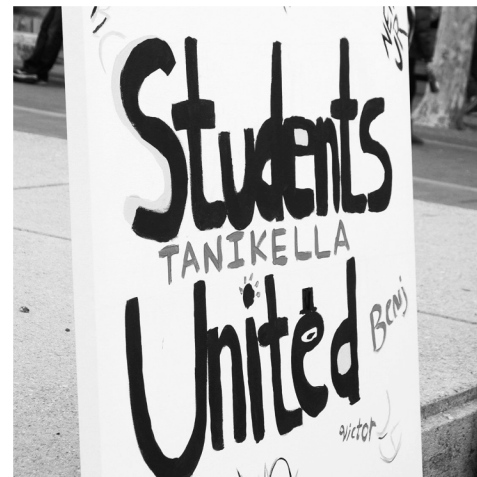 Students
TANIKELLA
United
Benj
victor